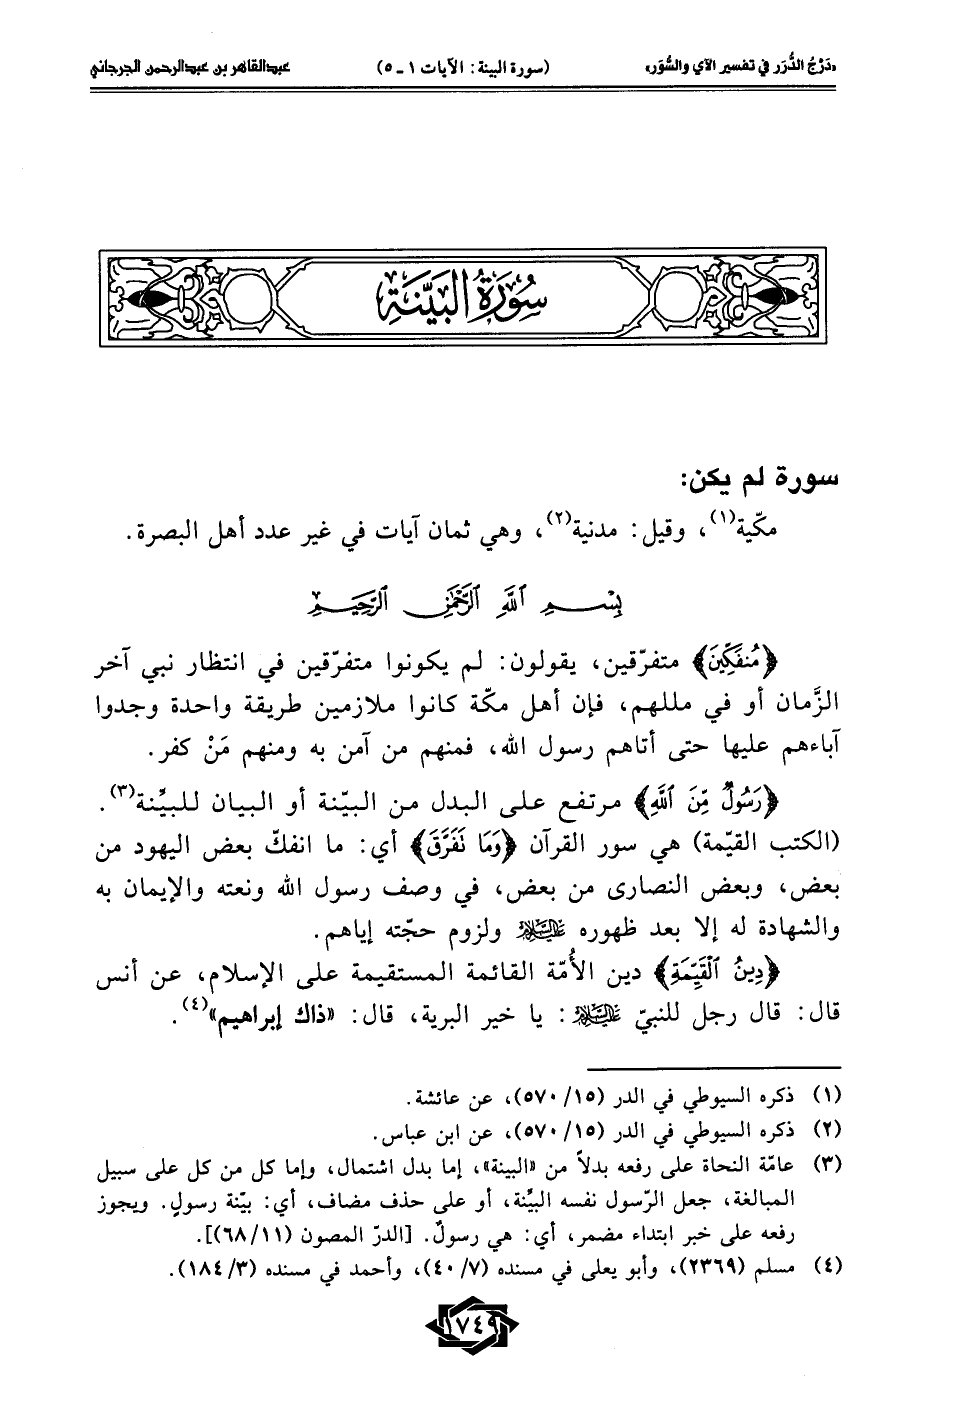 «دَرْجُ الدُّرَر في تفسير الآي والسُّوَر» (سورة البينة: الآيات ١ ـ ٥) عبدالقاهر بن عبدالرحمن الجرجاني
سُورَةُ البَيِّنَةِ
سورة لم يكن:
مكّية(١)، وقيل: مدنية(٢)، وهي ثمان آيات في غير عدد أهل البصرة.
بِسْمِ ٱللَّهِ ٱلرَّحْمَٰنِ ٱلرَّحِيمِ
﴿مُنفَكِّينَ﴾ متفرّقين، يقولون: لم يكونوا متفرّقين في انتظار نبي آخر
الزَّمان أو في مللهم، فإن أهل مكّة كانوا ملازمين طريقة واحدة وجدوا
آباءهم عليها حتى أتاهم رسول الله، فمنهم من آمن به ومنهم مَنْ كفر.
﴿رَسُولٌ مِّنَ ٱللَّهِ﴾ مرتفع على البدل من البيّنة أو البيان للبيِّنة(٣).
(الكتب القيّمة) هي سور القرآن ﴿وَمَا نَفَرَّقَ﴾ أي: ما انفكّ بعض اليهود من
بعض، وبعض النصارى من بعض، في وصف رسول الله ونعته والإيمان به
والشهادة له إلا بعد ظهوره عليه السلام ولزوم حجّته إياهم.
﴿دِينُ ٱلْقَيِّمَةِ﴾ دين الأُمّة القائمة المستقيمة على الإسلام، عن أنس
قال: قال رجل للنبيّ عليه السلام: يا خير البرية، قال: «ذاك إبراهيم»(٤).
(١) ذكره السيوطي في الدر (١٥/ ٥٧٠)، عن عائشة.
(٢) ذكره السيوطي في الدر (١٥/ ٥٧٠)، عن ابن عباس.
(٣) عامّة النحاة على رفعه بدلاً من «البينة»، إما بدل اشتمال، وإما كل من كل على سبيل
المبالغة، جعل الرّسول نفسه البيِّنة، أو على حذف مضاف، أي: بيّنة رسولٍ. ويجوز
رفعه على خبر ابتداء مضمر، أي: هي رسولٌ. [الدرّ المصون (١١/ ٦٨)].
(٤) مسلم (٢٣٦٩)، وأبو يعلى في مسنده (٧/ ٤٠)، وأحمد في مسنده (٣/ ١٨٤).
١٧٤٩